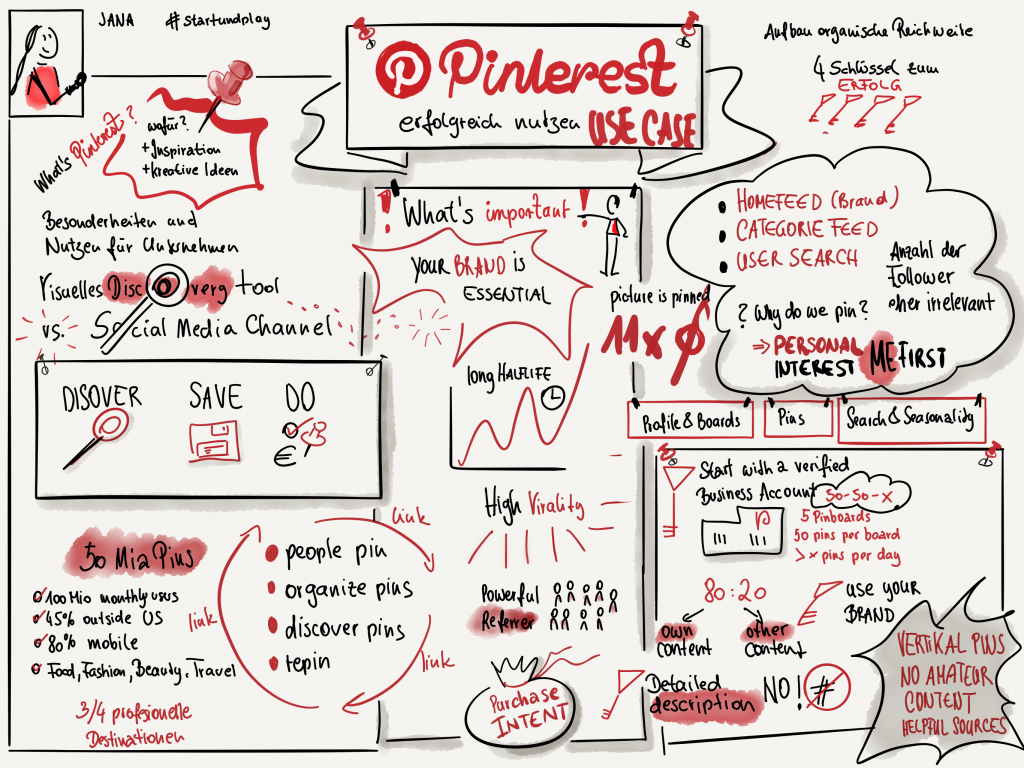 JANA #startundplay
Pinterest
erfolgreich nutzen USE CASE
Aufbau organische Reichweite
4 Schlüssel zum
ERFOLG
What's Pinterest?
wofür?
+ Inspiration
+ Kreative Ideen
Besonderheiten und
Nutzen für Unternehmen
Visuelles Discoverg tool
vs. Social Media Channel
DISOVER SAVE DO
€
50 Mia Pins
100 Mio monthly users
45% outside US
80% mobile
Food, Fashion, Beauty, Travel
3/4 profesionelle
Destinationen
link
people pin
organize pins
discover pins
repin
link
link
! What's important !
YOUR BRAND IS
ESSENTIAL
picture is pinned
11x ∅
long HALFLIFE
High Virality
Powerful
Referrer
Purchase
INTENT
HOMEFEED (Brand)
CATEGORIE FEED
USER SEARCH
Anzahl der
Follower
eher irrelevant
? Why do we pin?
⇒ PERSONAL
INTEREST
ME FIRST
Profile & Boards
Pins
Search & Seasonality
Start with a verified
Business Account
50-50-x
5 Pinboards
50 pins per board
> x pins per day
80:20
own
content
other
content
use your
BRAND
Detailed
description
NO! #
VERTIKAL PINS
NO AMATEUR
CONTENT
HELPFUL SOURCES